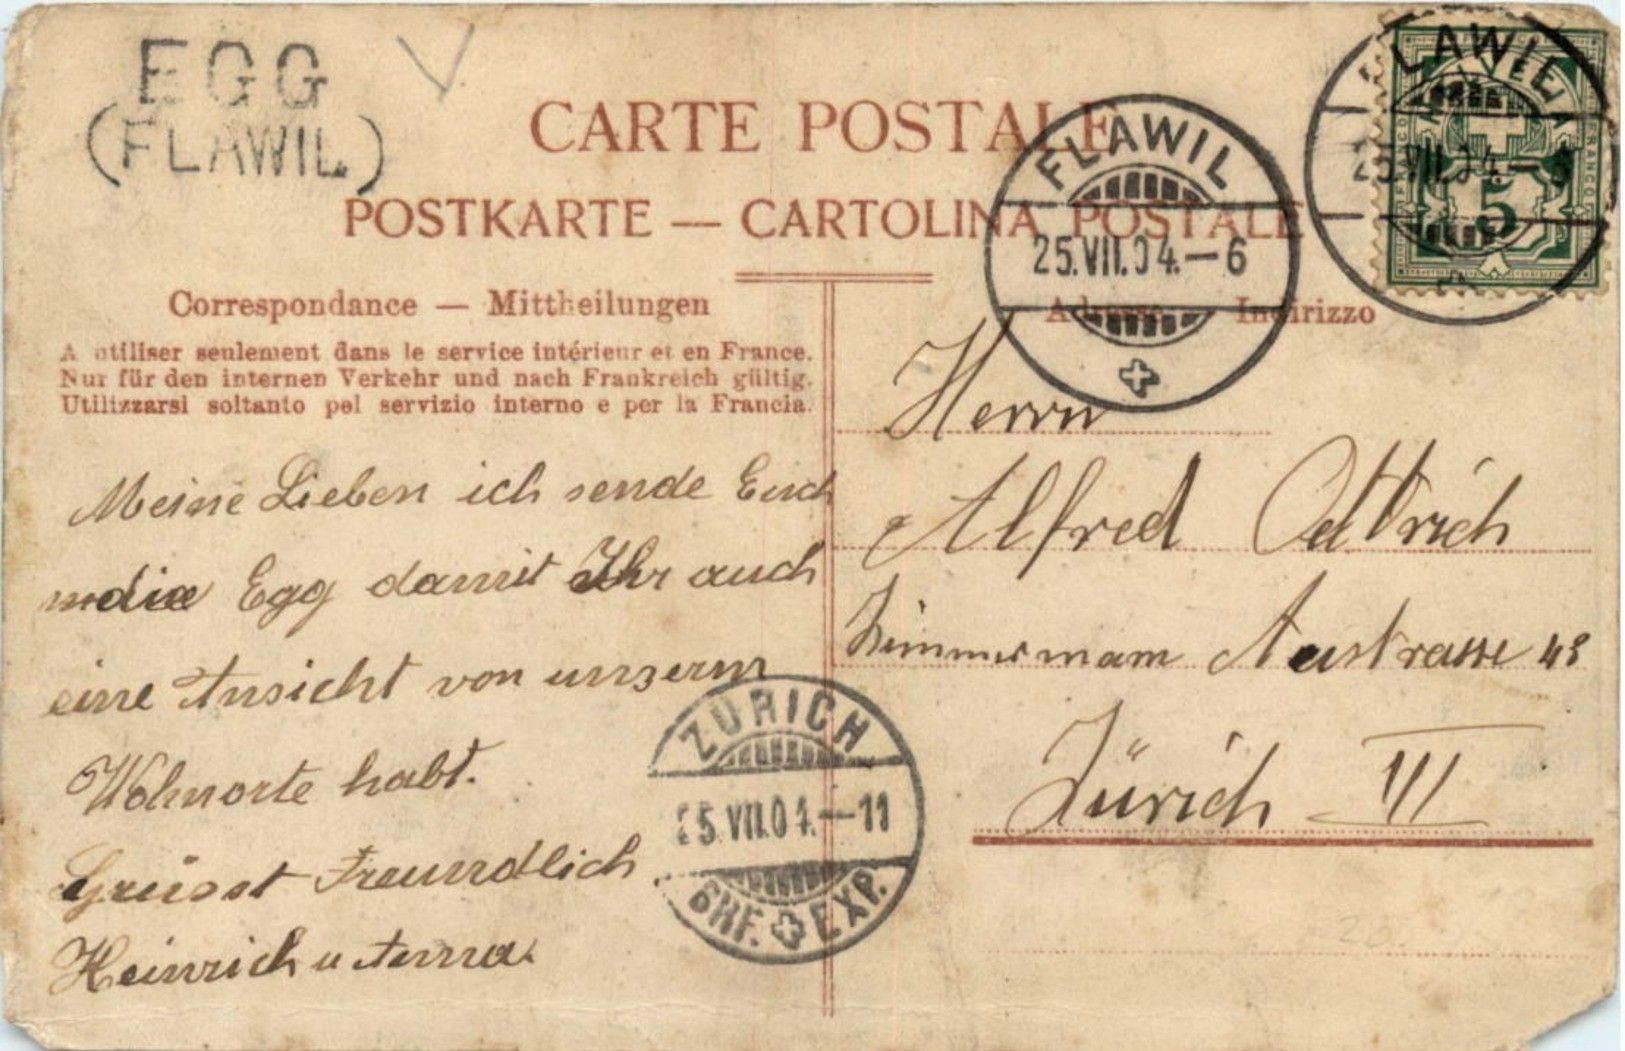 EGG
(FLAWIL)
V
CARTE POSTALE
POSTKARTE — CARTOLINA POSTALE
FLAWIL
25.VII.04.—6
FLAWIL
25.VII.04.—
FRANCO
5
Correspondance — Mittheilungen
A utiliser seulement dans le service intérieur et en France.
Nur für den internen Verkehr und nach Frankreich gültig.
Utilizzarsi soltanto pel servizio interno e per la Francia.
Meine Lieben ich sende Euch
die Egg damit Ihr auch
eine Ansicht von unserm
Wohnorte habt.
Grüsst Freundlich
Heinrich u Anna.
ZÜRICH
25.VII.04.—11
BRF. EXP.
Adresse Indirizzo
Herrn
Alfred
Zimmermann
Zürich III